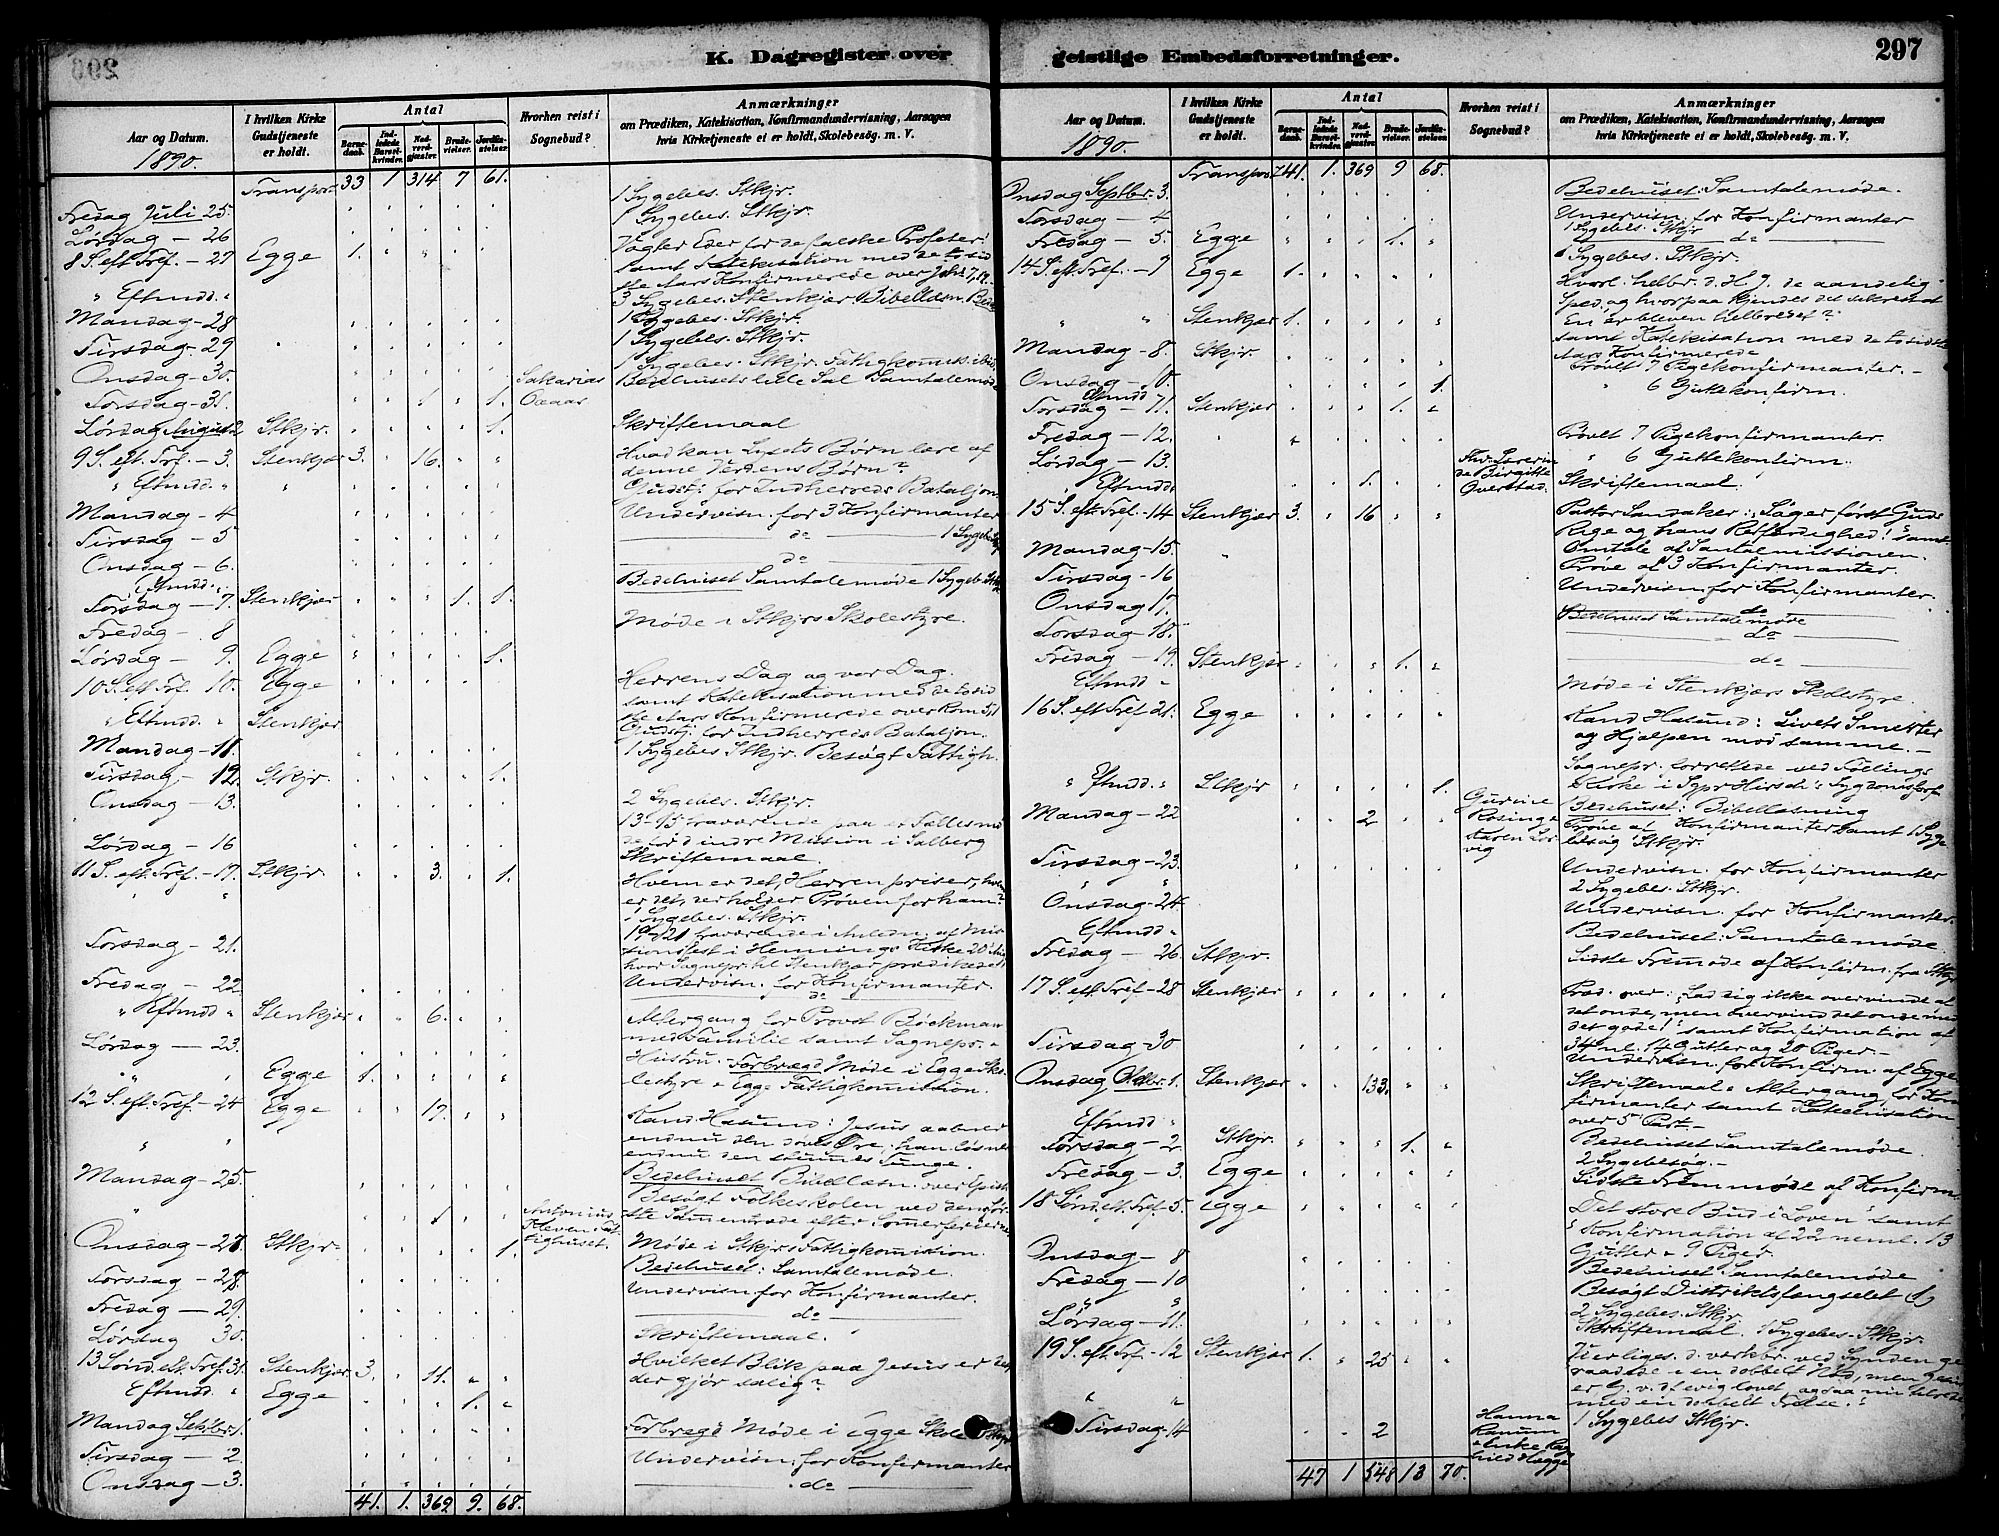 K. Dagregister over
Aar og Datum.
I hvilken Kirke
Gudstjeneste
er holdt.
Antal
Barne-
daab.
Ind-
ledede
Barsel-
kvinder.
Nad-
verd-
gjæster.
Brude-
vielser.
Jordfæ-
stelser.
Hvorhen reist i
Sognebud?
Anmærkninger
om Prædiken, Katekisation, Konfirmandundervisning, Aarsagen
hvis Kirketjeneste ei er holdt, Skolebesøg. m. V.
1890.
Transpor. 33 1 314 7 61.
Fredag Juli 25. 1 Sygebes. Stkjr.
Lørdag - 26 1 Sygebes. Stkjr.
8 S. eft Tref. - 27 Egge 1. Vogter Eder for de falske Profeter!
samt Katekisation med de to sid
ste Aars Konfirmerede over Joh. 7,17.
" Eftmdd. " 3 Sygebes. Stenkjær Bibellæsn.
Mandag - 28 1 Sygebes. Stkjr.
Tirsdag - 29 1 Sygebes. Stkjr.
Onsdag - 30. 1 Sygebes. Stkjr.
Torsdag - 31. 1 1. Sakarias Bedehusets lille Sal Samtalemøde
Lørdag August 2 Stkjr. 1. Skriftemaal
9 S. eft. Tref. - 3. Stenkjær 3. 16. Hvad kan Lysets Børn lære af
denne Verdens Børn?
" Eftmdd. " Gudstj. for Indherreds Bataljon
Mandag - 4 Undervisn. for 3 Konfirmanter
Tirsdag - 5 do 1 Sygebes.
Onsdag - 6. do
Eftmdd. Bedehuset Samtalemøde 1 Sygeb. Stkjr
Torsdag - 7. Stenkjær 1. 1.
Fredag - 8 Møde i Stkjrs Skolestyre.
Lørdag - 9. Egge 1.
10 S. eft Tref. 10. Egge Herrens Dag og vor Dag
samt Katekisation med de to sid
ste Aars Konfirmerede over Rom 5,1
" Eftmdd. " Stenkjær Gudstj. for Indherreds Bataljon.
Mandag - 11. 1 Sygebes Stkjr. Besøgt Fattigh.
Tirsdag - 12. Stkjr. 1.
Onsdag - 13. 2 Sygebes. Stkjr.
13-15 fraværende paa et Fællesmø
de for d indre Mission i Salberg
Lørdag - 16 Skriftemaal.
11 S. eft. Tref. - 17. Stkjr. 3. 1. Hvem er det, Herren priser, hvem
er det, der holder Prøven for ham?
1 Sygebes. Stkjr.
Torsdag - 21. 19-21 fraværende i Anledn. af Mis
sionsfest i Hennings Kirke 20 Aug
hvor Sognepr. til Stenkjær prædikede
Fredag - 22. Undervisn. for Konfirmanter.
do
" Eftmdd " Stenkjær 6. Altergang for Provst Bøckman
Lørdag - 23. med Familie samt Sognepr. -
Hustru. - Forbregd Møde i Egge Sko
" Egge 1. lestyre & Egge Fattigkomission.
12 S. eft. Tref. - 24 Egge 17. Kand. Hasund: Jesus aabner
endnu den døves Øre, han løsner
endnu den stummes Tunge.
Mandag - 25. Bedehuset Bibellæsn. over
Besøgt Folkeskolen ved den før
ste Sammentræde efter Somerferierne
1 Antonius
Kleven Fat
tighuset.
Onsdag - 27. Stkjr. 1. Møde i Stkjrs Fattigkomission.
Torsdag - 28. Bedehuset: Samtalemøde.
Fredag - 29. Undervisn. for Konfirmanter.
do
Lørdag 30. Skriftemaal.
13 Sønd. eft. Tref. 31. Stenkjær 3. 11. Hvilket Blik paa Jesus er det
der gjør salig?
Eftmdd. " Egge 1.
Mandag Septbr. 1. Forbregd Møde i Egge Skole
Tirsdag - 2. Undervisn. for Konfirmanter
Onsdag - 3. do
41. 1. 369. 9. 68.
geistlige Embedsforretninger.
297
Aar og Datum.
I hvilken Kirke
Gudstjeneste
er holdt.
Antal
Barne-
daab.
Ind-
ledede
Barsel-
kvinder.
Nad-
verd-
gjæster.
Brude-
vielser.
Jordfæ-
stelsen
Hvorhen reist i
Sognebud?
Anmærkninger
om Prædiken, Katekisation, Konfirmandundervisning, Aarsagen
hvis Kirketjeneste ei er holdt, Skolebesøg. m. V.
1890.
Transport 41. 1. 369 9 68.
Onsdag Septbr. 3. Bedehuset: Samtalemøde.
Torsdag - 4 Undervisn. for Konfirmanter
1 Sygebes. Stkjr
Fredag - 5. Egge 1. do
1 Sygebes. Stkjr.
14 S. eft Tref. - 7 Egge 1. Hvorl. helbr. d. H. J. de aandelig
Sped. og hvorpaa kjendes det sikrest at
En er bleven helbredet?
samt Katekisation med de to sidste
Aars Konfirmerede
" " Stenkjær 1.
Mandag - 8. Stkjr. Prøvet 7 Pigekonfirmanter. -
Onsdag - 10. 1. " 6 Guttekonfirm.
Eftmdd
Torsdag - 11. Stenkjær 1.
Fredag - 12. Prøvet 7 Pigekonfirmanter.
Lørdag - 13. " 6 Guttekonfirm.
" Eftmdd " 1. Birgitte
Overstad. Skriftemaal.
15 S. eft Tref - 14 Stenkjær 3. 16 Pastor Sandaker: "Søger først Guds
Rige og hans Retfærdighed!" samt
Omtale af Santalmissionen.
Mandag - 15. Prøve af 3 Konfirmanter.
Tirsdag - 16 Undervisn. for Konfirmanter.
Onsdag 17. do
Bedehuset Samtalemøde
Torsdag - 18. do
Fredag - 19. Stenkjær 1. do
Eftmdd " Møde i Stenkjærs Skolestyre
16 S. eft Tref - 21. Egge Kand Hasund: Livets Smerter
og Hjælpen mod samme. -
Sognepr. forrettede ved Føllings
Kirke i Sgpr Hirsch's Sygdomsforf
" Eftmdd. " Stkjr 1. Bedehuset: Bibellæsning
Mandag - 22 2 Gurine
Rosinge
Prøve af Konfirmanter samt 1 Syge
besøg Stkjr.
Tirsdag - 23. Undervisn. for Konfirmanter
" " 2 Sygebes. Stkjr.
Onsdag - 24. Undervisn. for Konfirmanter.
Eftmdd " Bedehuset: Samtalemøde
Fredag - 26. Stkjr. Sidste Fremmøde af Konfirm. fra Stkjr
17 S. eft Tref - 28 Stenkjær Præd. over: "Lad dig ikke overvinde af
det onde, men overvind det onde med
det gode!" samt Konfirmation af
34 nl. 14 Gutter og 20 Piger. -
Tirsdag - 30 Undervisn. for Konfirm. af Egge
Onsdag Oktbr. 1. Stenkjær 133. Skriftemaal & Altergang for Kon
firmanter samt Katekisation
over 5 Part. -
Eftmdd " Bedehuset Samtalemøde
Torsdag - 2. Stkjr. 1. 2 Sygebesøg. -
Fredag - 3. Egge Sidste Fremmøde af Konfirm.
18 Sønd. eft Tref - 5. Egge Det store Bud i Loven samt
Konfirmation af 22 neml. 13
Gutter & 9 Piger
Onsdag - 8 Bedehuset Samtalemøde
Fredag - 10 Besøgt Distriktsfængselet (1)
" " 2 Sygebes. Stkjr.
Lørdag - 11. Skriftemaal. 1 Sygebes. Stkjr.
19 S. eft Tref - 12 Stenkjær 1. 25
raadede i en dobbelt Nød, men
med en dobbelt Frelse."
Tirsdag - 14 2 Hanna
Ranum
1 Sygebes Stkjr.
47 1 548 13 70.